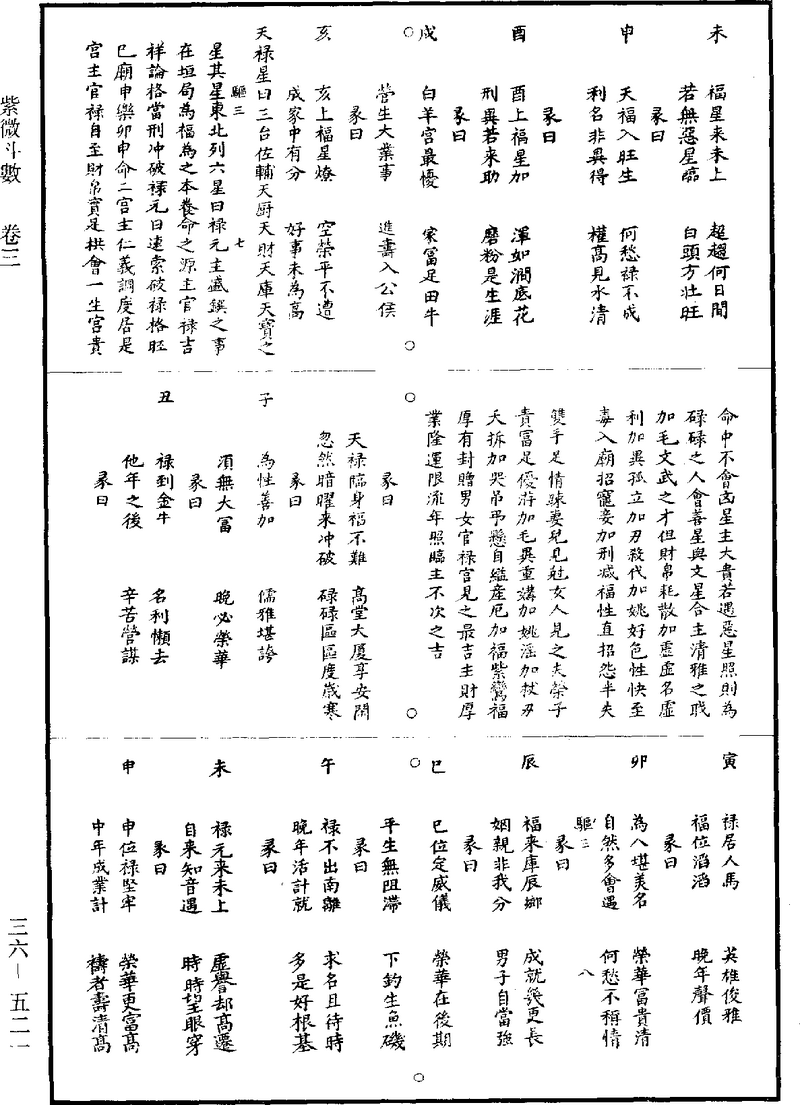 紫微斗數 卷三
未
福星来未上 超趨何日閒
若無惡星臨 白頭方壮旺
彖曰
申
天福入旺生 何愁禄不成
利名非異得 權高見水清
彖曰
酉
酉上福星加 渾如澗底花
刑異若来助 磨粉是生涯
彖曰
戌
白羊宫最優 家富足田牛
營生大業事 進壽入公侯
彖曰
亥
亥上福星燎 空榮平不遭
成家中有分 好事未為高
天禄星曰三台佐輔天厨天財天庫天寶之
驅三 七
星其星東北列六星曰禄元主盛饌之事
在垣局為福為之本養命之源主官禄吉
祥論格當刑冲破禄元日速索破禄格旺
巳廟申樂卯申命二宫主仁義調度居是
宫主官禄自至財帛實是拱會一生宫貴
命中不會凶星主大貴若遇惡星照則為
碌碌之人會善星與文星合主清雅之職
加毛文武之才但財帛耗散加虛虛名虛
利加異孤立加刃殺伐加姚好色性快至
毒入廟招寵妾加刑减福性直招怨半夫
雙手足情踈妻兒見尅女人見之夫榮子
貴富足優游加毛異重媾加姚淫加杖刃
夭拆加哭吊弔懸自縊產厄加福紫鸞福
厚有封贈男女官禄宫見之最吉主財厚
業隆運限流年照臨主不次之吉
彖曰
天禄臨身福不難 高堂大厦享安閑
忽然暗曜来冲破 碌碌區區度歲寒
彖曰
子
為性善加 儒雅堪誇
須無大富 晚必榮華
彖曰
丑
禄到金牛 名利懶去
他年之後 辛苦營謀
彖曰
寅
禄居人馬 英雄俊雅
福位滔滔 晚年聲價
彖曰
卯
為人堪美名 榮華富貴清
自然多會遇 何愁不稱情
驅三 八
彖曰
辰
福来庫辰鄉 成就幾更長
姻親非我分 男子自當強
彖曰
巳
巳位定威儀 榮華在後期
平生無阻滯 下釣生魚磯
彖曰
午
禄不出南離 求名且待時
晚年活計就 多是好根基
彖曰
未
禄元来未上 虛譽却高遷
自来知音遇 時時望眼穿
彖曰
申
申位禄堅牢 榮華更富高
中年成業計 禱者壽清高
三六—五二一